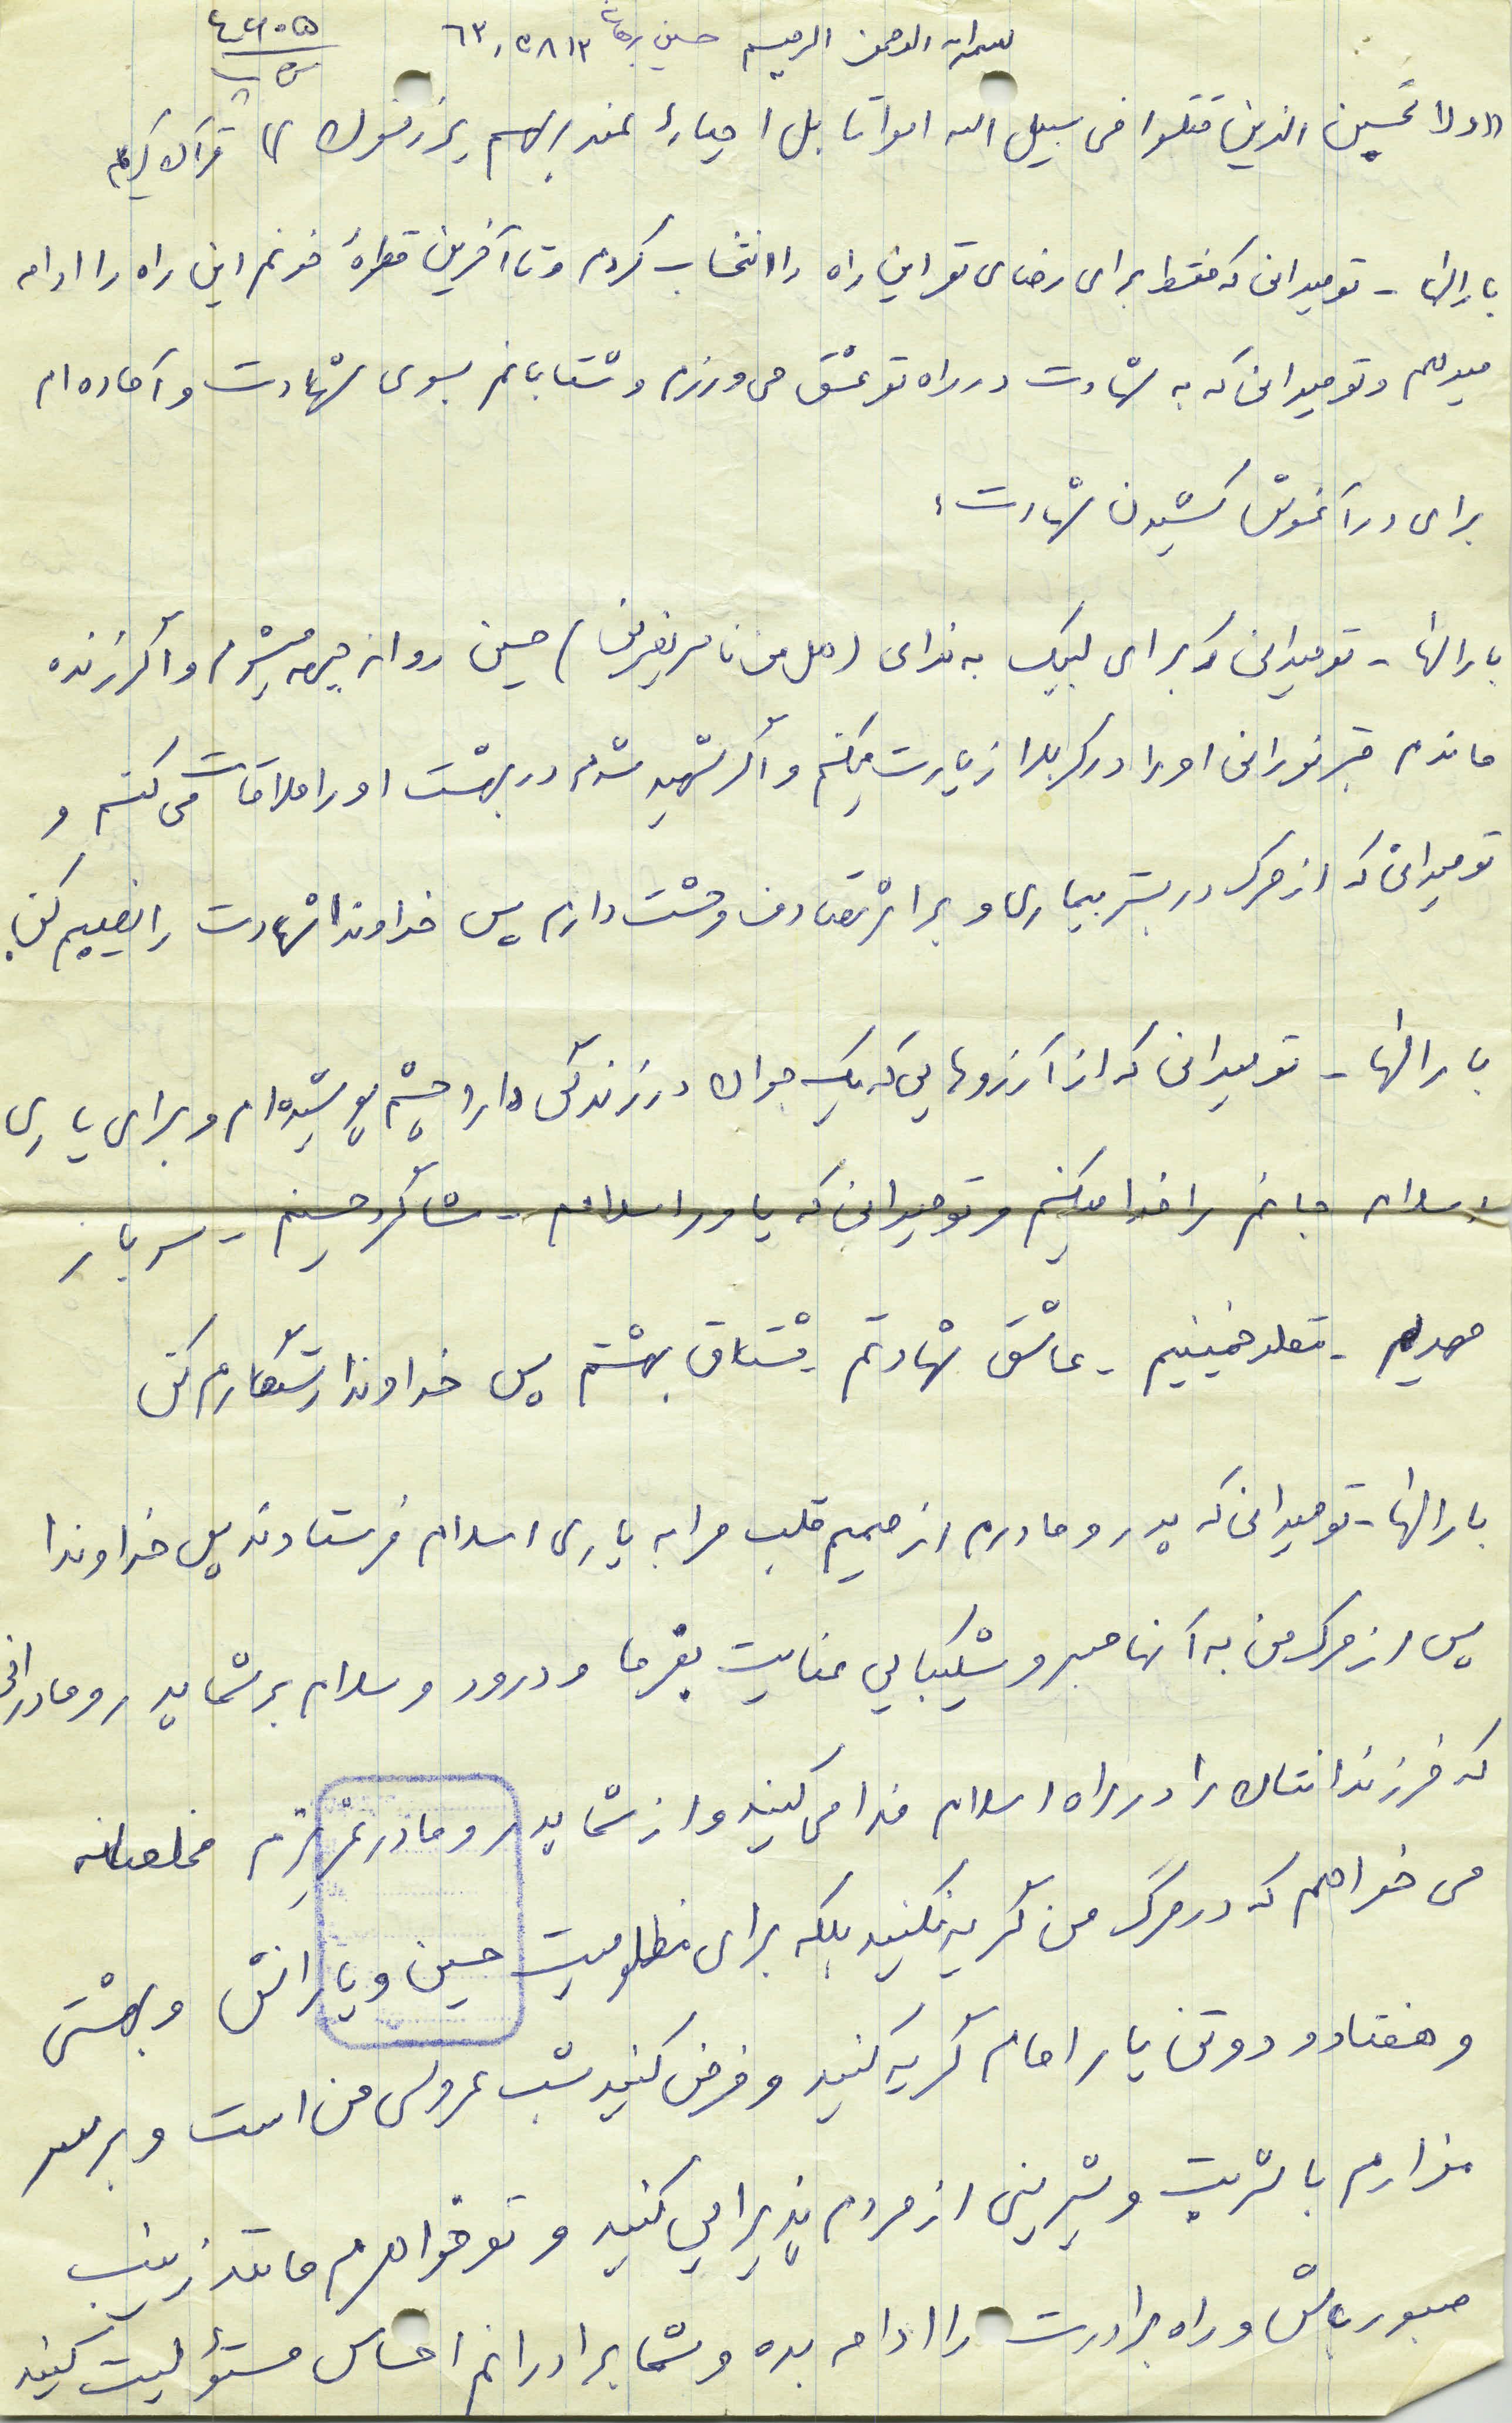 بسم الله الرحمن الرحیم حسین
«ولا تحسبن الذین قتلوا فی سبیل الله امواتا بل احیاءٌ عند ربهم یرزقون» قرآن کریم
بارالها - تومیدانی که فقط برای رضای تو این راه را انتخاب کردم و تا آخرین قطرهٔ خونم این راه را ادامه
میدهم و تو میدانی که به شهادت در راه تو عشق می ورزم و شتابانم بسوی شهادت و آماده ام
برای در آغوش کشیدن شهادت؛
بارالها - تو میدانی که برای لبیک به ندای (هل من ناصر ینصرنی) حسین روانه جبهه میشوم و اگر زنده
ماندم قبر نورانی او را در کربلا زیارت میکنم و اگر شهید شدم در بهشت او را ملاقات می کنم و
تو میدانی که از مرگ در بستر بیماری و بر اثر تصادف وحشت دارم پس خداوندا شهادت را نصیبم کن.
بارالها - تو میدانی که از آرزوهایی که یک جوان در زندگی دارد چشم پوشیده ام و برای یاری
اسلام جانم را فدا میکنم و تو میدانی که یاور اسلامم - شاگرد حسینم - سرباز
مهدیم - مقلد خمینیم - عاشق شهادتم - مشتاق بهشتم پس خداوندا رستگارم کن
بارالها - تو میدانی که پدر و مادرم از صمیم قلب مرا به یاری اسلام فرستادند پس خداوندا
پس از مرگ من به آنها صبر و شکیبایی عنایت بفرما و درود و سلام بر شما پدر و مادرانی
که فرزندانتان را در راه اسلام فدا می کنید و از شما پدر و مادر عزیزم مخلصانه
می خواهم که در مرگ من گریه نکنید بلکه برای مظلومیت حسین و یارانش و بهشتی
و هفتاد و دو تن یار امام گریه کنید و فرض کنید شب عروسی من است و بر سر
مزارم با شربت و شیرینی از مردم پذیرایی کنید و تو خواهرم مانند زینب
صبور باش و راه برادرت را ادامه بده و شما برادرانم احساس مسئولیت کنید